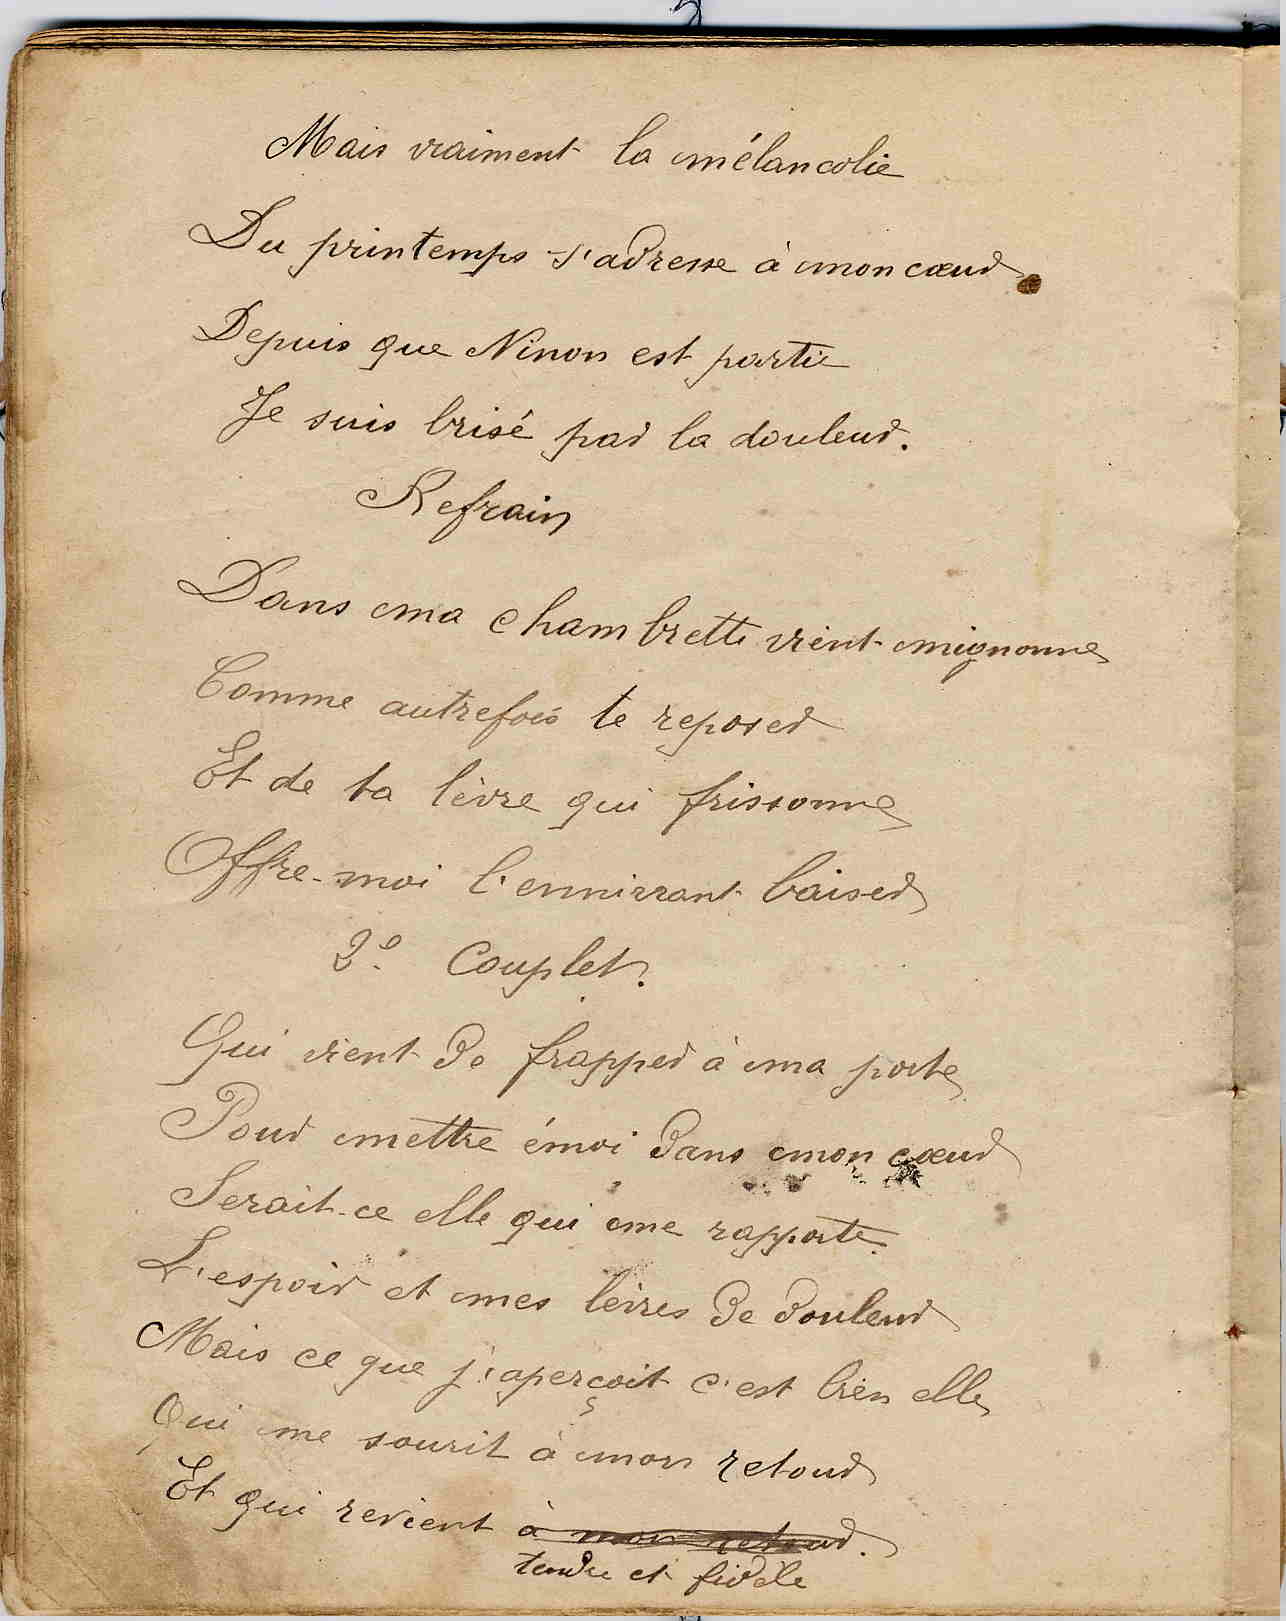 Mais vraiment la mélancolie
Du printemps s'adresse à mon cœur
Depuis que Ninon est partie
Je suis brisé par la douleur.
Refrain
Dans ma chambrette vient mignonne
Comme autrefois te reposer
Et de ta lèvre qui frissonne
Offre-moi l'ennivrant baiser
2e. Couplet.
Qui vient de frapper à ma porte
Pour mettre émoi dans mon cœur
Serait-ce elle qui me rapporte
L'espoir et mes lèvres de douleur
Mais ce que j'aperçoit c'est bien elle
Qui me sourit à mon retour
Et qui revient à mon retour.
tendre et fidèle